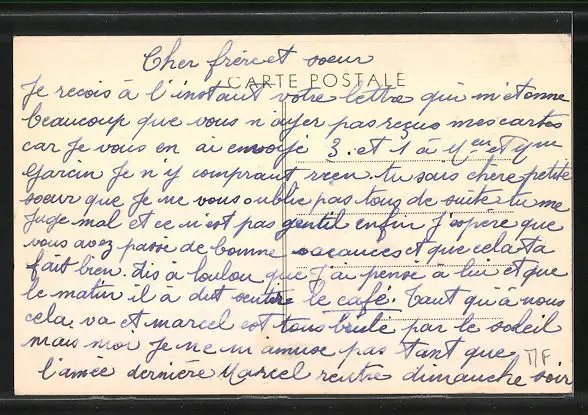 Cher frère et soeur
CARTE POSTALE
Je recois à l'instant votre lettre qui m'etonne
beaucoup que vous n'ayer pas reçus mes cartes
car Je vous en ai envoyé 3. et 1 à Yen et Yme
Garcin Je n'y comprant rien. tu sais chère petite
soeur que Je ne vous oublie pas tous de suite tu me
Juge mal et ce n'est pas gentil enfin J'espère que
vous avez passe de bonne vacances et que cela ta
fait bien. dis à loulou que J'ai pense à lui et que
le matin il à dut sentire le café. Tant qu'à nous
cela. va et marcel est tous brulé par le soleil
mais moi Je ne m'amuse pas tant que
l'amée dernière Marcel rentre dimanche soir